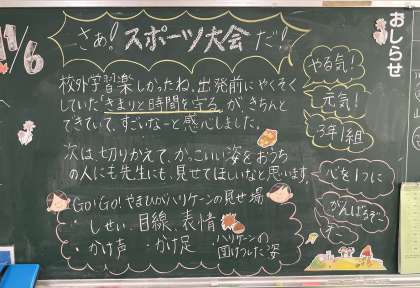 11/6
さぁ!スポーツ大会だ!
おしらせ
校外学習楽しかったね。出発前にやくそく
していた「きまりと時間を守る」がきちんと
できていて、すごいなーと感心しました。
次は、切りかえて、かっこいい姿をおうち
の人にも先生にも、見せてほしいなと思います。
Go!Go!やまびがハリケーンの見せ場
・しせい、目線、表情
・かけ声 ・かけ足
ハリケーンの
団けつした姿
やる気!
元気!
3年1組
心を1つに
がんばるぞ